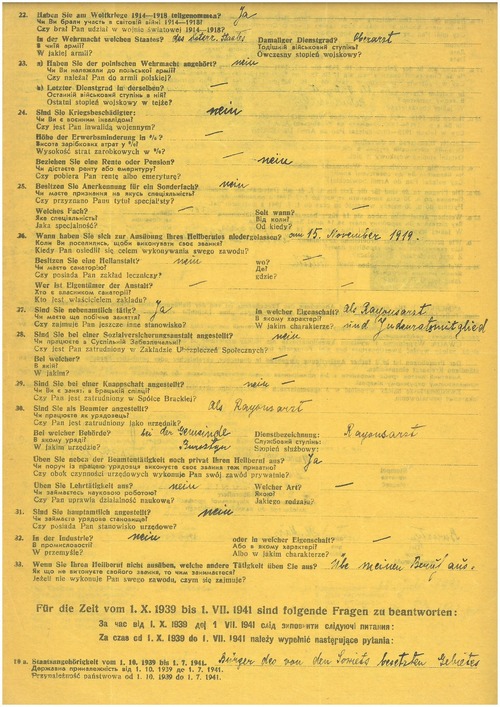 22. Haben Sie am Weltkriege 1914—1918 teilgenommen? Ja
Чи Ви брали участь в світовій війні 1914—1918?
Czy brał Pan udział w wojnie światowej 1914—1918?
In der Wehrmacht welchen Staates? des österr. Staates Damaliger Dienstgrad? Oberarzt
В чиїй армії? Тодішній військовий ступінь?
W jakiej armii? Ówczesny stopień wojskowy?
23. a) Haben Sie der polnischen Wehrmacht angehört? nein
Чи Ви належали до польської армії?
Czy należał Pan do armii polskiej?
b) Letzter Dienstgrad in derselben? —
Останній військовий ступінь в ній?
Ostatni stopień wojskowy w tejże?
24. Sind Sie Kriegsbeschädigter: nein
Чи Ви є воєнним інвалідом?
Czy jest Pan inwalidą wojennym?
Höhe der Erwerbsminderung in %? —
Висота зарібкових втрат у %?
Wysokość strat zarobkowych w %?
Beziehen Sie eine Rente oder Pension? nein
Чи дістаєте ренту або емеритуру?
Czy pobiera Pan rentę albo emeryturę?
25. Besitzen Sie Anerkennung für ein Sonderfach? nein
Чи маєте признання на якусь спеціяльність?
Czy przyznano Panu tytuł specjalisty?
Welches Fach? — Seit wann? —
Яка спеціяльність? Від коли?
Jaka specjalność? Od kiedy?
26. Wann haben Sie sich zur Ausübung Ihres Heilberufes niedergelassen? am 15. November 1919.
Коли Ви поселились, щоби виконувати своє звання?
Kiedy Pan osiedlił się celem wykonywania swego zawodu?
Besitzen Sie eine Heilanstalt? nein wo? —
Чи маєте санаторію? Де?
Czy posiada Pan zakład leczniczy? gdzie?
Wer ist Eigentümer der Anstalt? —
Хто є власником санаторії?
Kto jest właścicielem zakładu?
27. Sind Sie nebenamtlich tätig? Ja in welcher Eigenschaft? als Rayonsarzt
Чи маєте ще побічне заняття? В якому характері?
Czy zajmuje Pan jeszcze inne stanowisko? W jakim charakterze? und Judenratsmitglied
28. Sind Sie bei einer Sozialversicherungsanstalt angestellt? nein
Чи працюєте в Суспільній Забезпечальні?
Czy jest Pan zatrudniony w Zakładzie Ubezpieczeń Społecznych?
Bei welcher? —
В якій?
W jakim?
29. Sind Sie bei einer Knappschaft angestellt? nein —
Чи Ви є заняті в Брацькій спілці?
Czy jest Pan zatrudniony w Spółce Brackiej?
30. Sind Sie als Beamter angestellt? als Rayonsarzt
Чи працюєте як урядовець?
Czy jest Pan zatrudniony jako urzędnik?
Bei welcher Behörde? bei der Gemeinde Dienstbezeichnung: Rayonsarzt
В якому уряді? Службовий ступінь:
W jakim urzędzie? Stopień służbowy:
Üben Sie neben der Beamtentätigkeit noch privat Ihren Heilberuf aus? Ja
Чи поруч із працею урядовця виконуєте своє звання теж приватно?
Czy obok czynności urzędowych wykonuje Pan swój zawód prywatnie?
Üben Sie Lehrtätigkeit aus? nein Welcher Art? —
Чи займаєтесь науковою роботою? Якою?
Czy Pan uprawia działalność naukową? Jakiego rodzaju?
31. Sind Sie hauptamtlich angestellt? nein
Чи займаєте урядове становище?
Czy posiada Pan stanowisko urzędowe?
32. In der Industrie? nein oder in welcher Eigenschaft? —
В промисловості? Або в якому характері?
W przemyśle? Albo w jakim charakterze?
33. Wenn Sie Ihren Heilberuf nicht ausüben, welche andere Tätigkeit üben Sie aus? Übe meinen Beruf aus.
Як що не виконуєте свойого звання, то чим займаєтеся?
Jeżeli nie wykonuje Pan swego zawodu, czym się zajmuje?
Für die Zeit vom 1. X. 1939 bis 1. VII. 1941 sind folgende Fragen zu beantworten:
За час від 1. X. 1939 до 1 VII. 1941 слід заповнити слідуючі питання:
Za czas od 1. X. 1939 do 1. VII. 1941 należy wypełnić następujące pytania:
10 a. Staatsangehörigkeit vom 1. 10. 1939 bis 1. 7. 1941. Bürger des von den Sowiets besetzten Gebietes
Державна приналежність від 1. 10. 1939 до 1. 7. 1941.
Przynależność państwowa od 1. 10. 1939 do 1. 7. 1941.